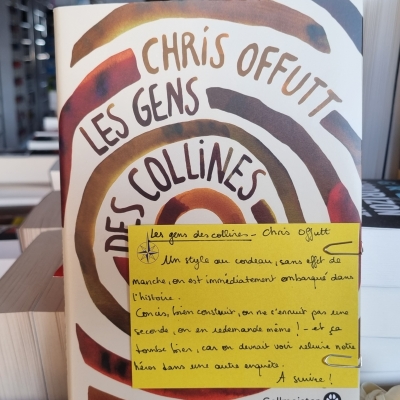 CHRIS OFFUTT
LES GENS
DES COLLINES
Les gens des collines - Chris Offutt
Un style au cordeau, sans effet de
manche, on est immédiatement embarqué dans
l'histoire.
Concis, bien construit, on ne s'ennuit pas une
seconde, on en redemande même ! - et ça
tombe bien, car on devrait voir revivre notre
héros dans une autre enquête.
A suivre !
Gallmeister